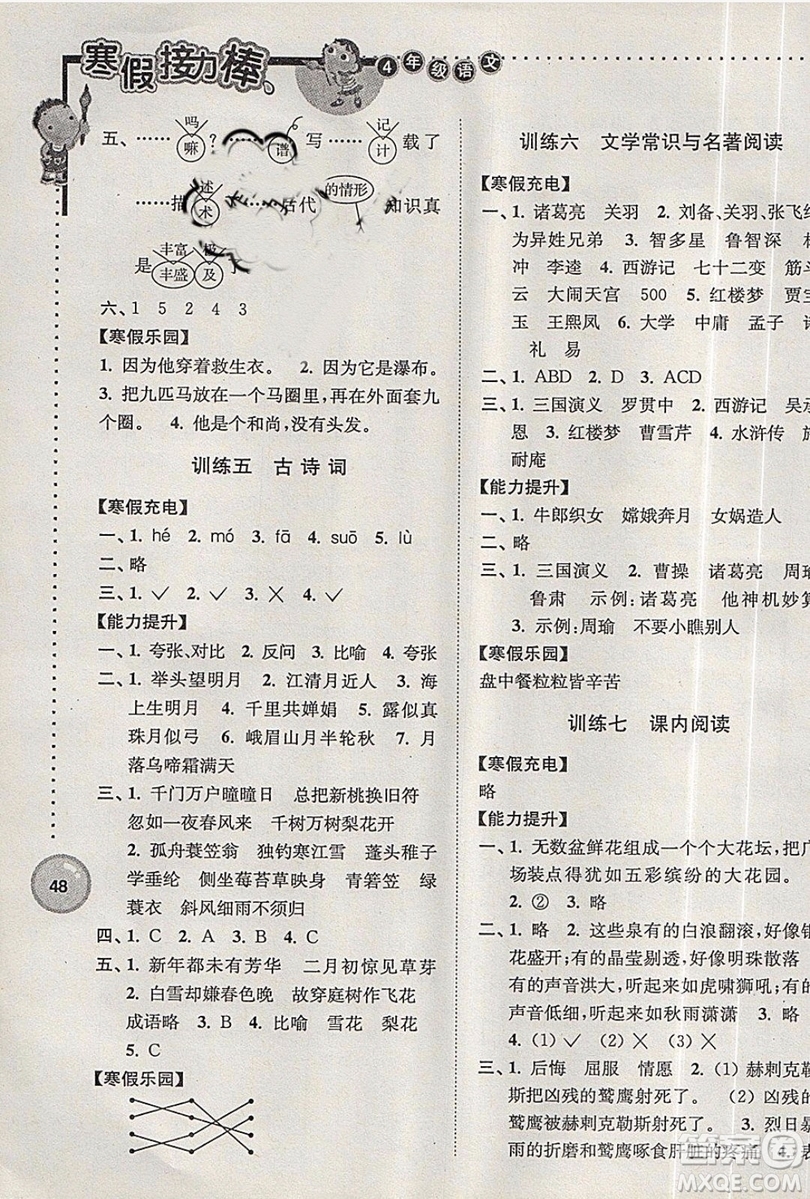 寒假接力棒
4年级语文
五、……吗
嘛？……谱 写……记
计 载了
……描 述
术 ……古代 的情形 知识真
是 丰富 极
丰盛 及 了
六、1 5 2 4 3
【寒假乐园】
1. 因为他穿着救生衣。 2. 因为它是瀑布。
3. 把九匹马放在一个马圈里，再在外面套九
个圈。 4. 他是个和尚，没有头发。
训练五 古诗词
【寒假充电】
一、1. hé 2. mó 3. fā 4. suō 5. lù
二、略
三、1. ✓ 2. ✓ 3. ✓ 4. × 5. ×
【能力提升】
一、1. 夸张、对比 2. 反问 3. 比喻 4. 夸张
二、1. 举头望明月 2. 江清月近人 3. 海
上生明月 4. 千里共婵娟 5. 露似真
珠月似弓 6. 峨眉山月半轮秋 7. 月
落乌啼霜满天
三、1. 千门万户曈曈日 总把新桃换旧符
忽如一夜春风来 千树万树梨花开
2. 孤舟蓑笠翁 独钓寒江雪 蓬头稚子
学垂纶 侧坐莓苔草映身 青箬笠 绿
蓑衣 斜风细雨不须归
四、1. C 2. A 3. B 4. C
五、1. 新年都未有芳华 二月初惊见草芽
2. 白雪却嫌春色晚 故穿庭树作飞花
成语略 3. C 4. 比喻 雪花 梨花
5. C
【寒假乐园】
48
训练六 文学常识与名著阅读
【寒假充电】
一、1. 诸葛亮 关羽 2. 刘备、关羽、张飞结
为异姓兄弟 3. 智多星 鲁智深 林
冲 李逵 4. 西游记 七十二变 筋斗
云 大闹天宫 500 4. 红楼梦 贾宝
玉 王熙凤 6. 大学 中庸 孟子
礼 易
二、1. ABD 2. D 3. ACD
三、1. 三国演义 罗贯中 2. 西游记 吴承
恩 3. 红楼梦 曹雪芹 4. 水浒传 施
耐庵
【能力提升】
一、1. 牛郎织女 嫦娥奔月 女娲造人
二、略
三、1. 三国演义 2. 曹操 诸葛亮 周瑜
鲁肃 示例：诸葛亮 他神机妙算
3. 示例：周瑜 不要小瞧别人
【寒假乐园】
盘中餐粒粒皆辛苦
训练七 课内阅读
【寒假充电】
略
【能力提升】
一、1. 无数盆鲜花组成一个大花坛，把广
场装点得犹如五彩缤纷的大花园。
2. ② 3. 略
二、1. 略 2. 这些泉有的白浪翻滚，好像银
花盛开；有的晶莹剔透，好像明珠散落
有的声音洪大，听起来如虎啸狮吼；有的
声音低细，听起来如秋雨潇潇 3. 略
4. (1) ✓ (2) × (3) ×
三、1. 后悔 屈服 情愿 2. (1) 赫剌克勒
斯把凶残的鹫鹰射死了。 (2) 凶残的
鹫鹰被赫剌克勒斯射死了。 3. 烈日暴
雨的折磨和鹫鹰啄食肝脏的疼痛 4. 表
答案圈
MXQE.COM